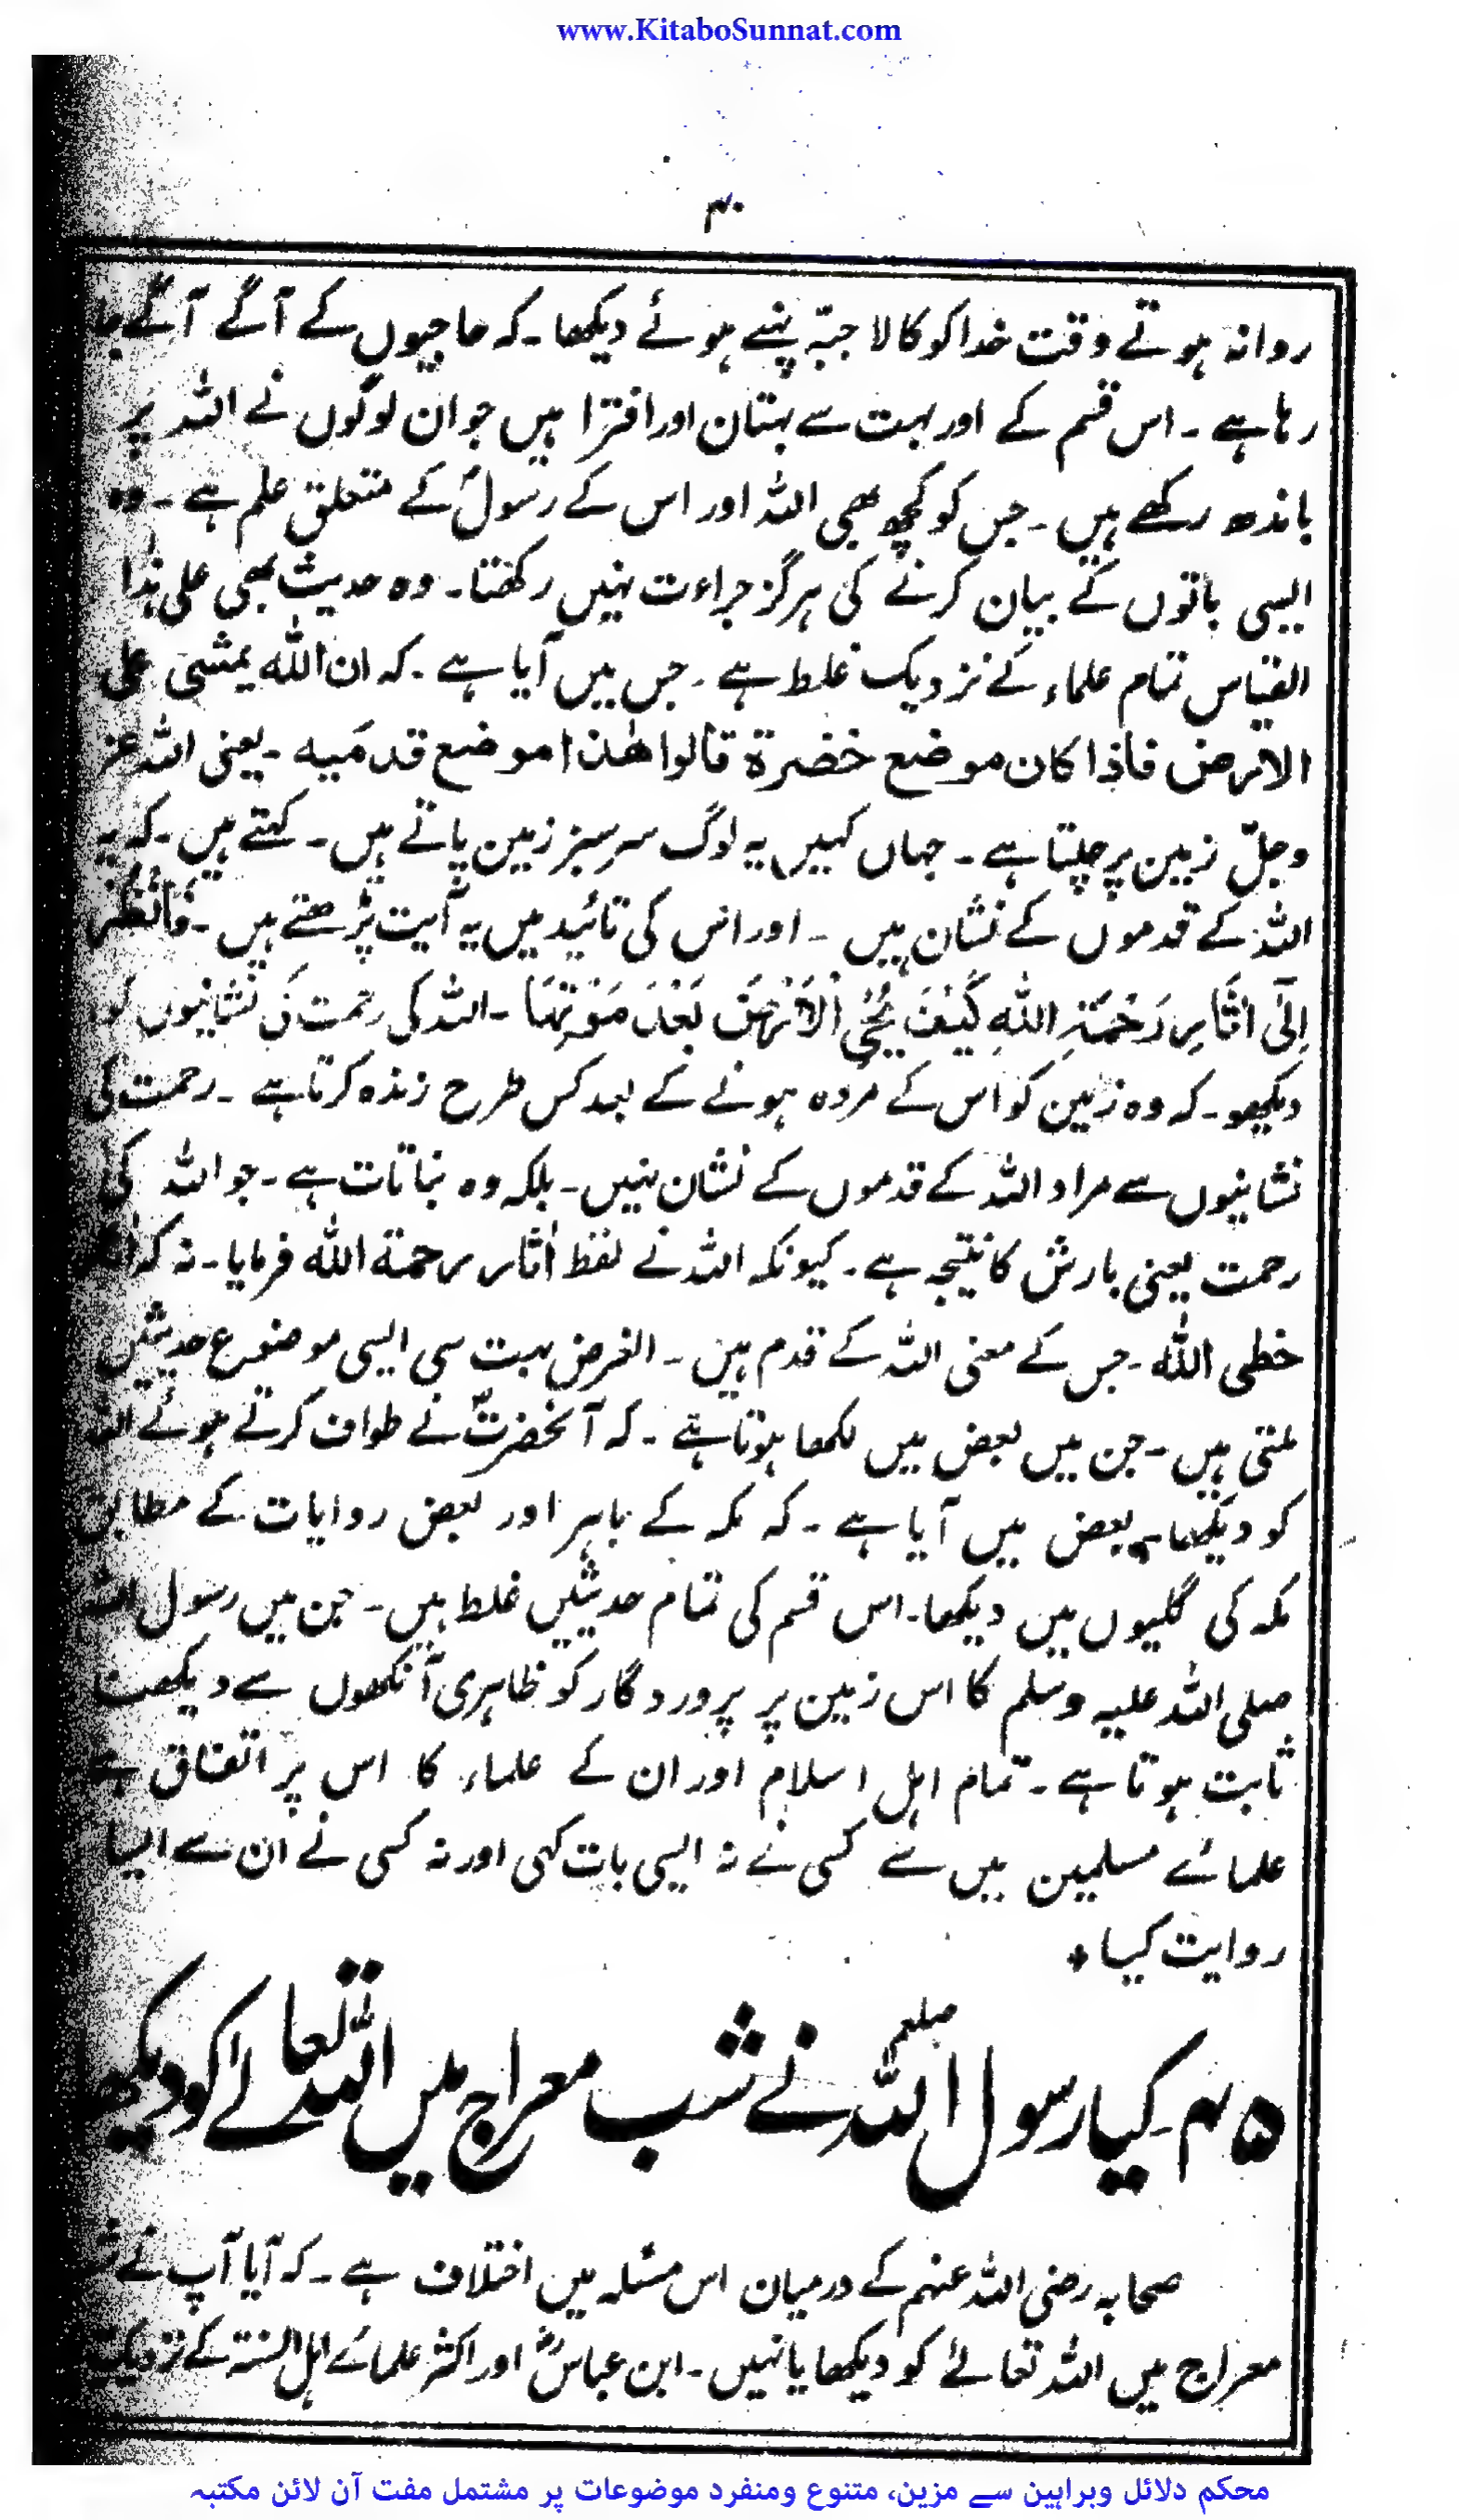 www.KitaboSunnat.com
۴۰
روانہ ہوتے وقت خدا کو کالا جبّہ پہنے ہوئے دیکھا۔ کہ حاجیوں کے آگے آگے جا
رہا ہے ۔ اس قسم کے اور بہت سے بہتان اور افترا ہیں جو ان لوگوں نے اللہ پر
باندھ رکھے ہیں ۔ جس کو کچھ بھی اللہ اور اس کے رسولؐ کے متعلق علم ہے ۔ وہ
ایسی باتوں کے بیان کرنے کی ہرگز جراءت نہیں رکھتا۔ وہ حدیث بھی علی ہٰذا
القیاس تمام علماء کے نزدیک غلط ہے ۔ جس میں آیا ہے ۔ کہ ان اللہ یمشی علی
الارض فاذا کان موضع خضرة قالوا ھٰذا موضع قدمیه ۔ یعنی اللہ عز
وجلّ زمین پر چلتا ہے ۔ جہاں کہیں یہ لوگ سرسبز زمین پاتے ہیں ۔ کہتے ہیں ۔ کہ یہ
اللہ کے قدموں کے نشان ہیں ۔ اور اس کی تائید میں یہ آیت پڑھتے ہیں ۔ فَانْظُرْ
اِلٰٓی اٰثَارِ رَحْمَۃِ اللّٰہِ کَیْفَ یُحْیِ الْاَرْضَ بَعْدَ مَوْتِھَا ۔ اللہ کی رحمت کی نشانیوں کو
دیکھو۔ کہ وہ زمین کو اس کے مردہ ہونے کے بعد کس طرح زندہ کرتا ہے ۔ رحمت کی
نشانیوں سے مراد اللہ کے قدموں کے نشان نہیں۔ بلکہ وہ نباتات ہے ۔ جو اللہ کی
رحمت یعنی بارش کا نتیجہ ہے ۔ کیونکہ اللہ نے لفظ اٰثار رحمة اللہ فرمایا۔ نہ کہ
خطی اللہ ۔ جس کے معنی اللہ کے قدم ہیں ۔ الغرض بہت سی ایسی موضوع حدیثیں
ملتی ہیں ۔ جن میں بعض میں لکھا ہوتا ہے ۔ کہ آنحضرتؐ نے طواف کرتے ہوئے اللہ
کو دیکھا۔ بعض میں آیا ہے ۔ کہ مکہ کے باہر اور بعض روایات کے مطابق
مکہ کی گلیوں میں دیکھا۔ اس قسم کی تمام حدیثیں غلط ہیں۔ جن میں رسول اللہ
صلی اللہ علیہ وسلم کا اس زمین پر پروردگار کو ظاہری آنکھوں سے دیکھنا
ثابت ہوتا ہے ۔ تمام اہل اسلام اور ان کے علماء کا اس پر اتفاق ہے
علمائے مسلمین میں سے کسی نے نہ ایسی بات کہی اور نہ کسی نے ان سے ایسا
روایت کیا ٭
۴۵۔ کیا رسول اللہ صلعم نے شب معراج میں اللہ تعالےٰ کو دیکھا
صحابہ رضی اللہ عنہم کے درمیان اس مسئلہ میں اختلاف ہے ۔ کہ آیا آپ نے
معراج میں اللہ تعالےٰ کو دیکھا یا نہیں ۔ ابن عباسؓ اور اکثر علمائے اہل السنۃ کے نزدیک
محکم دلائل وبراہین سے مزین، متنوع ومنفرد موضوعات پر مشتمل مفت آن لائن مکتبہ